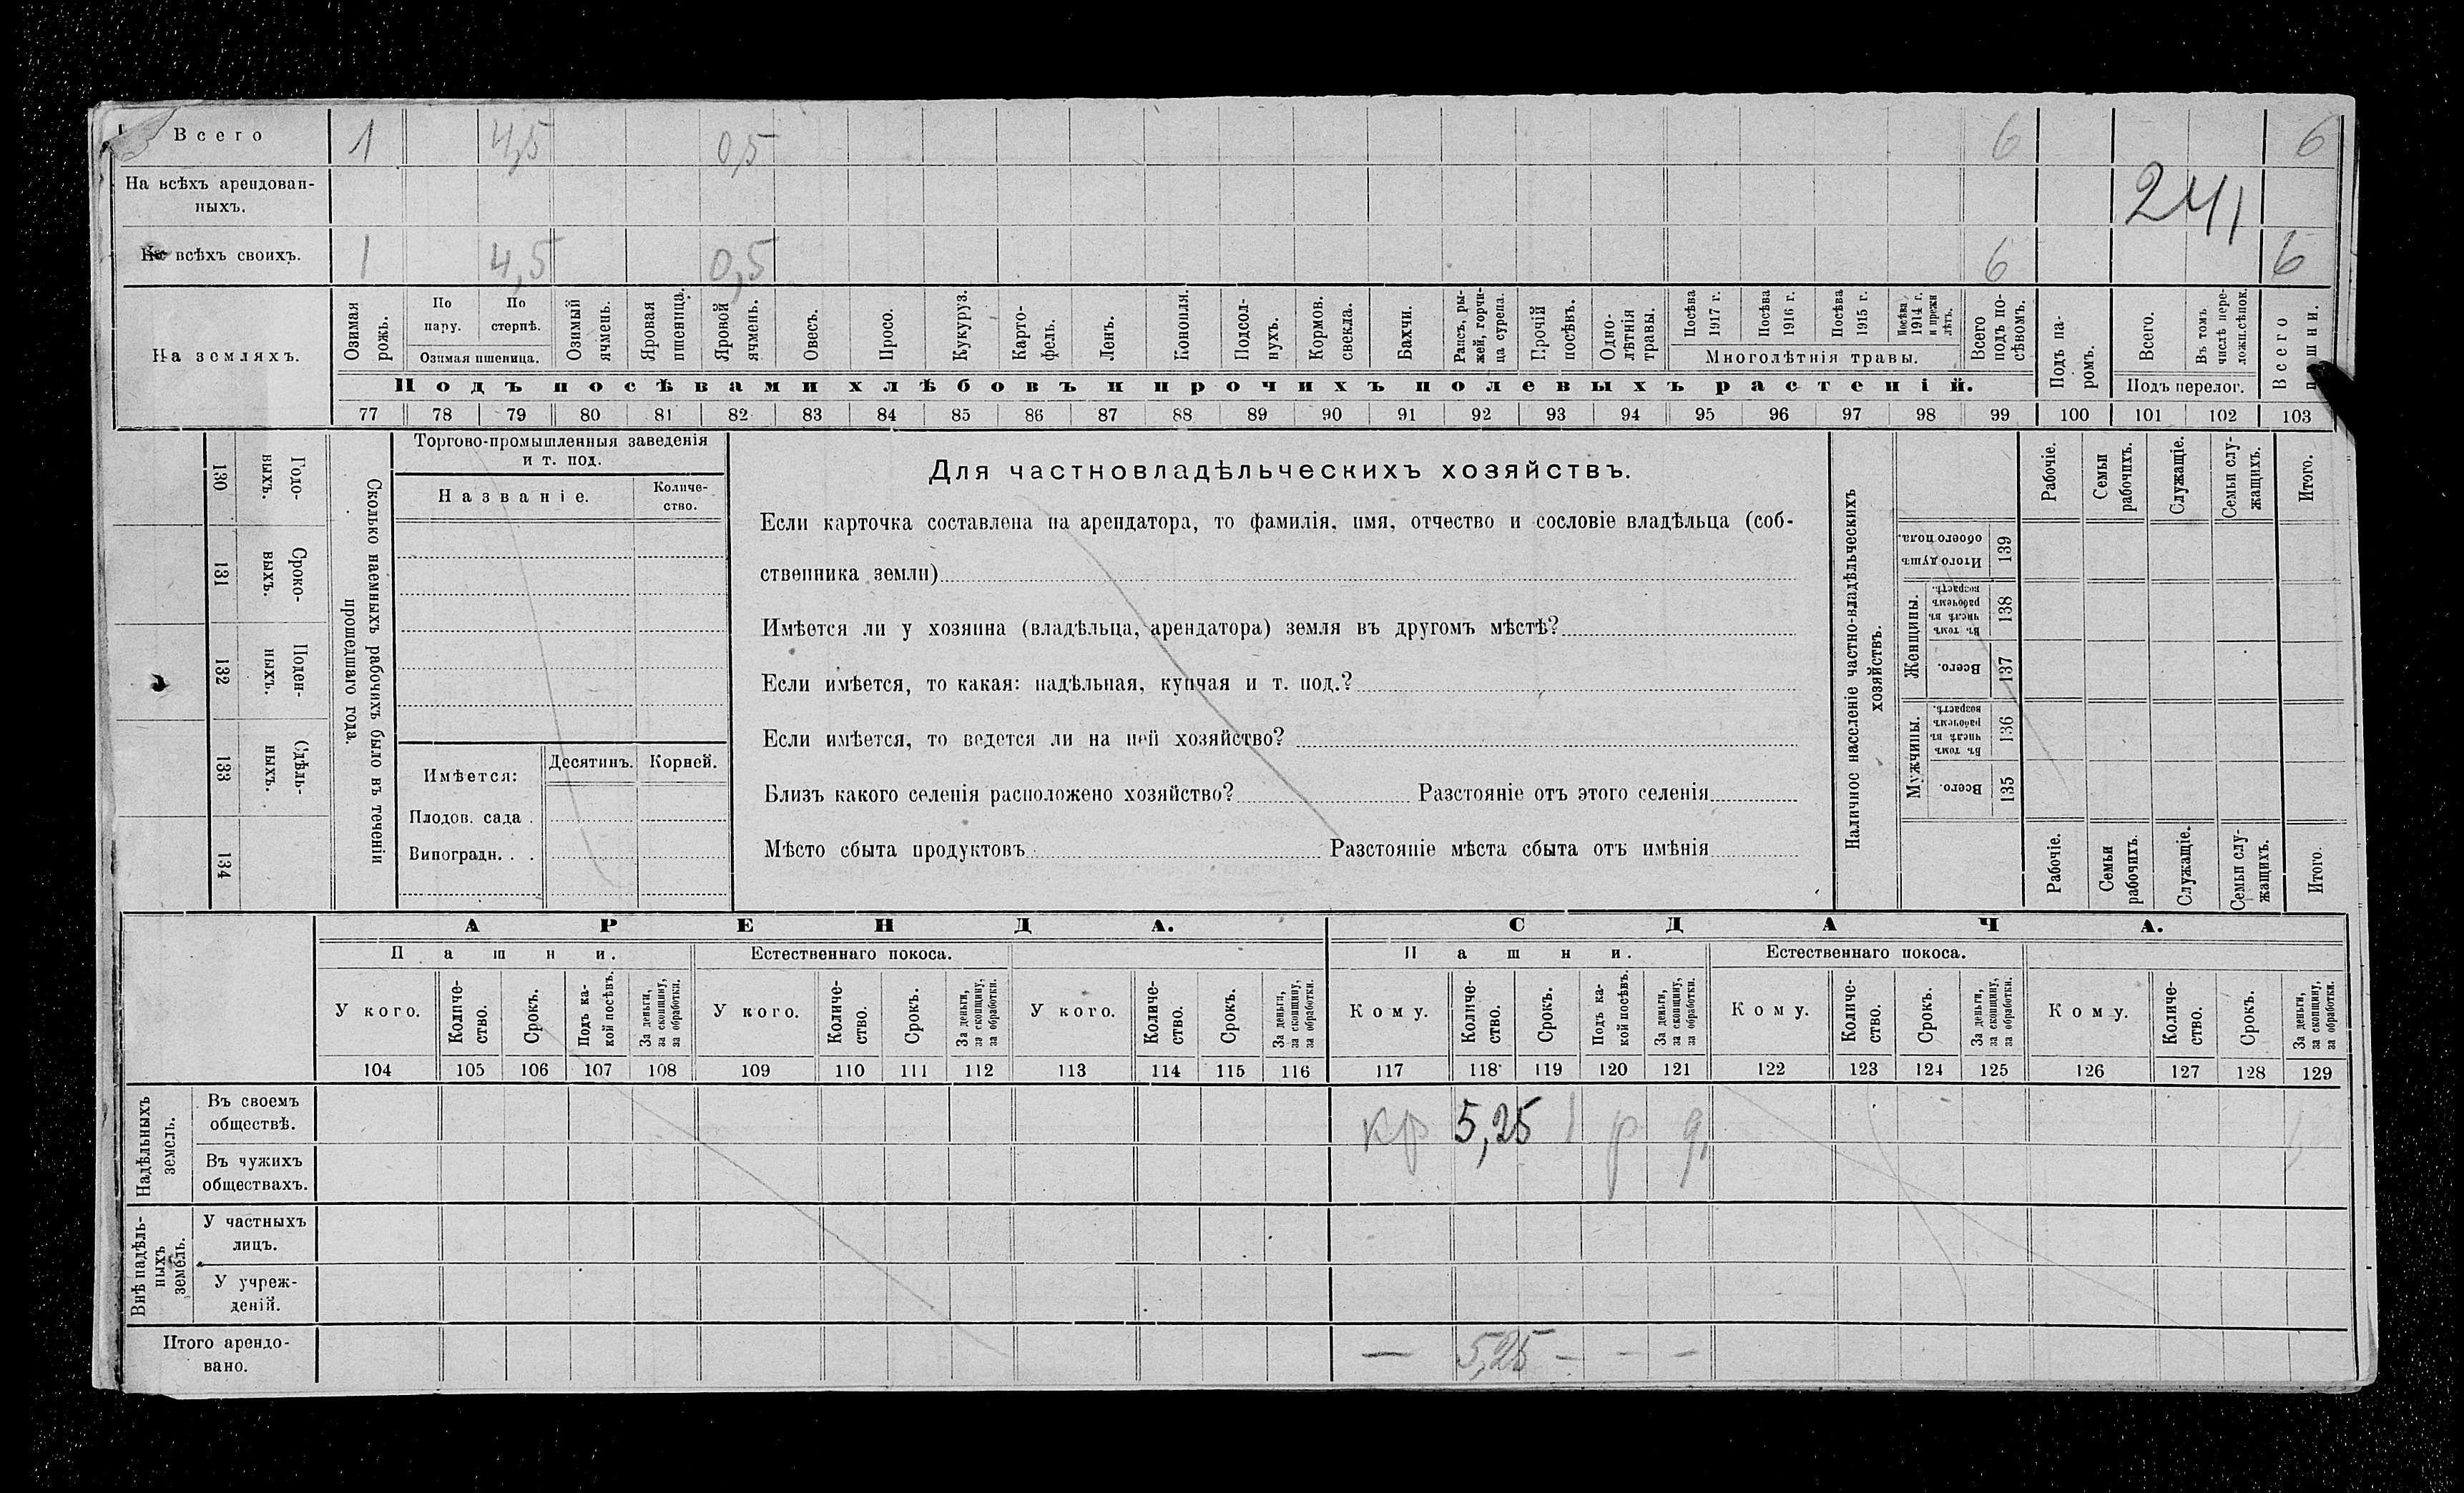 Всего 1 4,5 0,5 6 6
На всѣхъ арендован-
ныхъ.
241
На всѣхъ своихъ. 1 4,5 0,5 6 6
На земляхъ.
Озимая рожь.
По пару.
По стернѣ.
Озимая пшеница.
Озимый ячмень.
Яровая пшеница.
Яровой ячмень.
Овесъ.
Просо.
Кукуруз.
Карто-
фель.
Ленъ.
Конопля.
Подсол-
нухъ.
Кормов.
свекла.
Бахчи.
Рапсъ, ры-
жей, горчи-
ца сурепа.
Прочій
посѣвъ.
Одно-
лѣтнія
травы.
Посѣва
1917 г.
Посѣва
1916 г.
Посѣва
1915 г.
Посѣва
1914 г.
и прежн
лѣтъ.
Многолѣтнія травы.
Всего
подъ по-
сѣвомъ.
Подъ па-
ромъ.
Всего.
Въ томъ
числѣ пере-
ложн.сѣнок.
Подъ перелог.
Всего
пашни.
Подъ посѣвами хлѣбовъ и прочихъ полевыхъ растеній.
77 78 79 80 81 82 83 84 85 86 87 88 89 90 91 92 93 94 95 96 97 98 99 100 101 102 103
130 Годо-
выхъ.
131 Сроко-
выхъ.
132 Поден-
ныхъ.
133 Сдѣль-
ныхъ.
134
Сколько наемныхъ рабочихъ было въ теченіи
прошедшаго года.
Торгово-промышленныя заведенія
и т. под.
Названіе.
Количе-
ство.
Имѣется:
Десятинъ. Корней.
Плодов. сада .
Виноградн. . .
Для частновладѣльческихъ хозяйствъ.
Если карточка составлена на арендатора, то фамилія, имя, отчество и сословіе владѣльца (соб-
ственника земли)
Имѣется ли у хозяина (владѣльца, арендатора) земля въ другомъ мѣстѣ?
Если имѣется, то какая: надѣльная, купчая и т. под.?
Если имѣется, то ведется ли на ней хозяйство?
Близъ какого селенія расположено хозяйство? Разстояніе отъ этого селенія
Мѣсто сбыта продуктовъ Разстояніе мѣста сбыта отъ имѣнія
Наличное населеніе частно-владѣльческихъ
хозяйствъ.
Рабочіе.
Семьи
рабочихъ.
Служащіе.
Семьи слу-
жащихъ.
Итого.
Итого душъ
обоего пола.
139
Женщины.
Въ томъ
числѣ въ
рабочемъ
возрастѣ.
138
Всего.
137
Мужчины.
Въ томъ
числѣ въ
рабочемъ
возрастѣ.
136
Всего.
135
Рабочіе.
Семьи
рабочихъ.
Служащіе.
Семьи слу-
жащихъ.
Итого.
АРЕНДА. СДАЧА.
Пашни. Естественнаго покоса. Пашни. Естественнаго покоса.
У кого.
Количе-
ство.
Срокъ.
Подъ ка-
кой посѣвъ.
За деньги,
за скопщину,
за обработки.
У кого.
Количе-
ство.
Срокъ.
За деньги,
за скопщину,
за обработки.
У кого.
Количе-
ство.
Срокъ.
За деньги,
за скопщину,
за обработки.
Кому.
Количе-
ство.
Срокъ.
Подъ ка-
кой посѣвъ.
За деньги,
за скопщину,
за обработки.
Кому.
Количе-
ство.
Срокъ.
За деньги,
за скопщину,
за обработки.
Кому.
Количе-
ство.
Срокъ.
За деньги,
за скопщину,
за обработки.
104 105 106 107 108 109 110 111 112 113 114 115 116 117 118 119 120 121 122 123 124 125 126 127 128 129
Надѣльныхъ
земель.
Въ своемъ
обществѣ.
кр 5,25 1 р д,
Въ чужихъ
обществахъ.
Внѣ надѣль-
ныхъ
земель.
У частныхъ
лицъ.
У учреж-
деній.
Итого арендо-
вано.
— 5,25 — — —